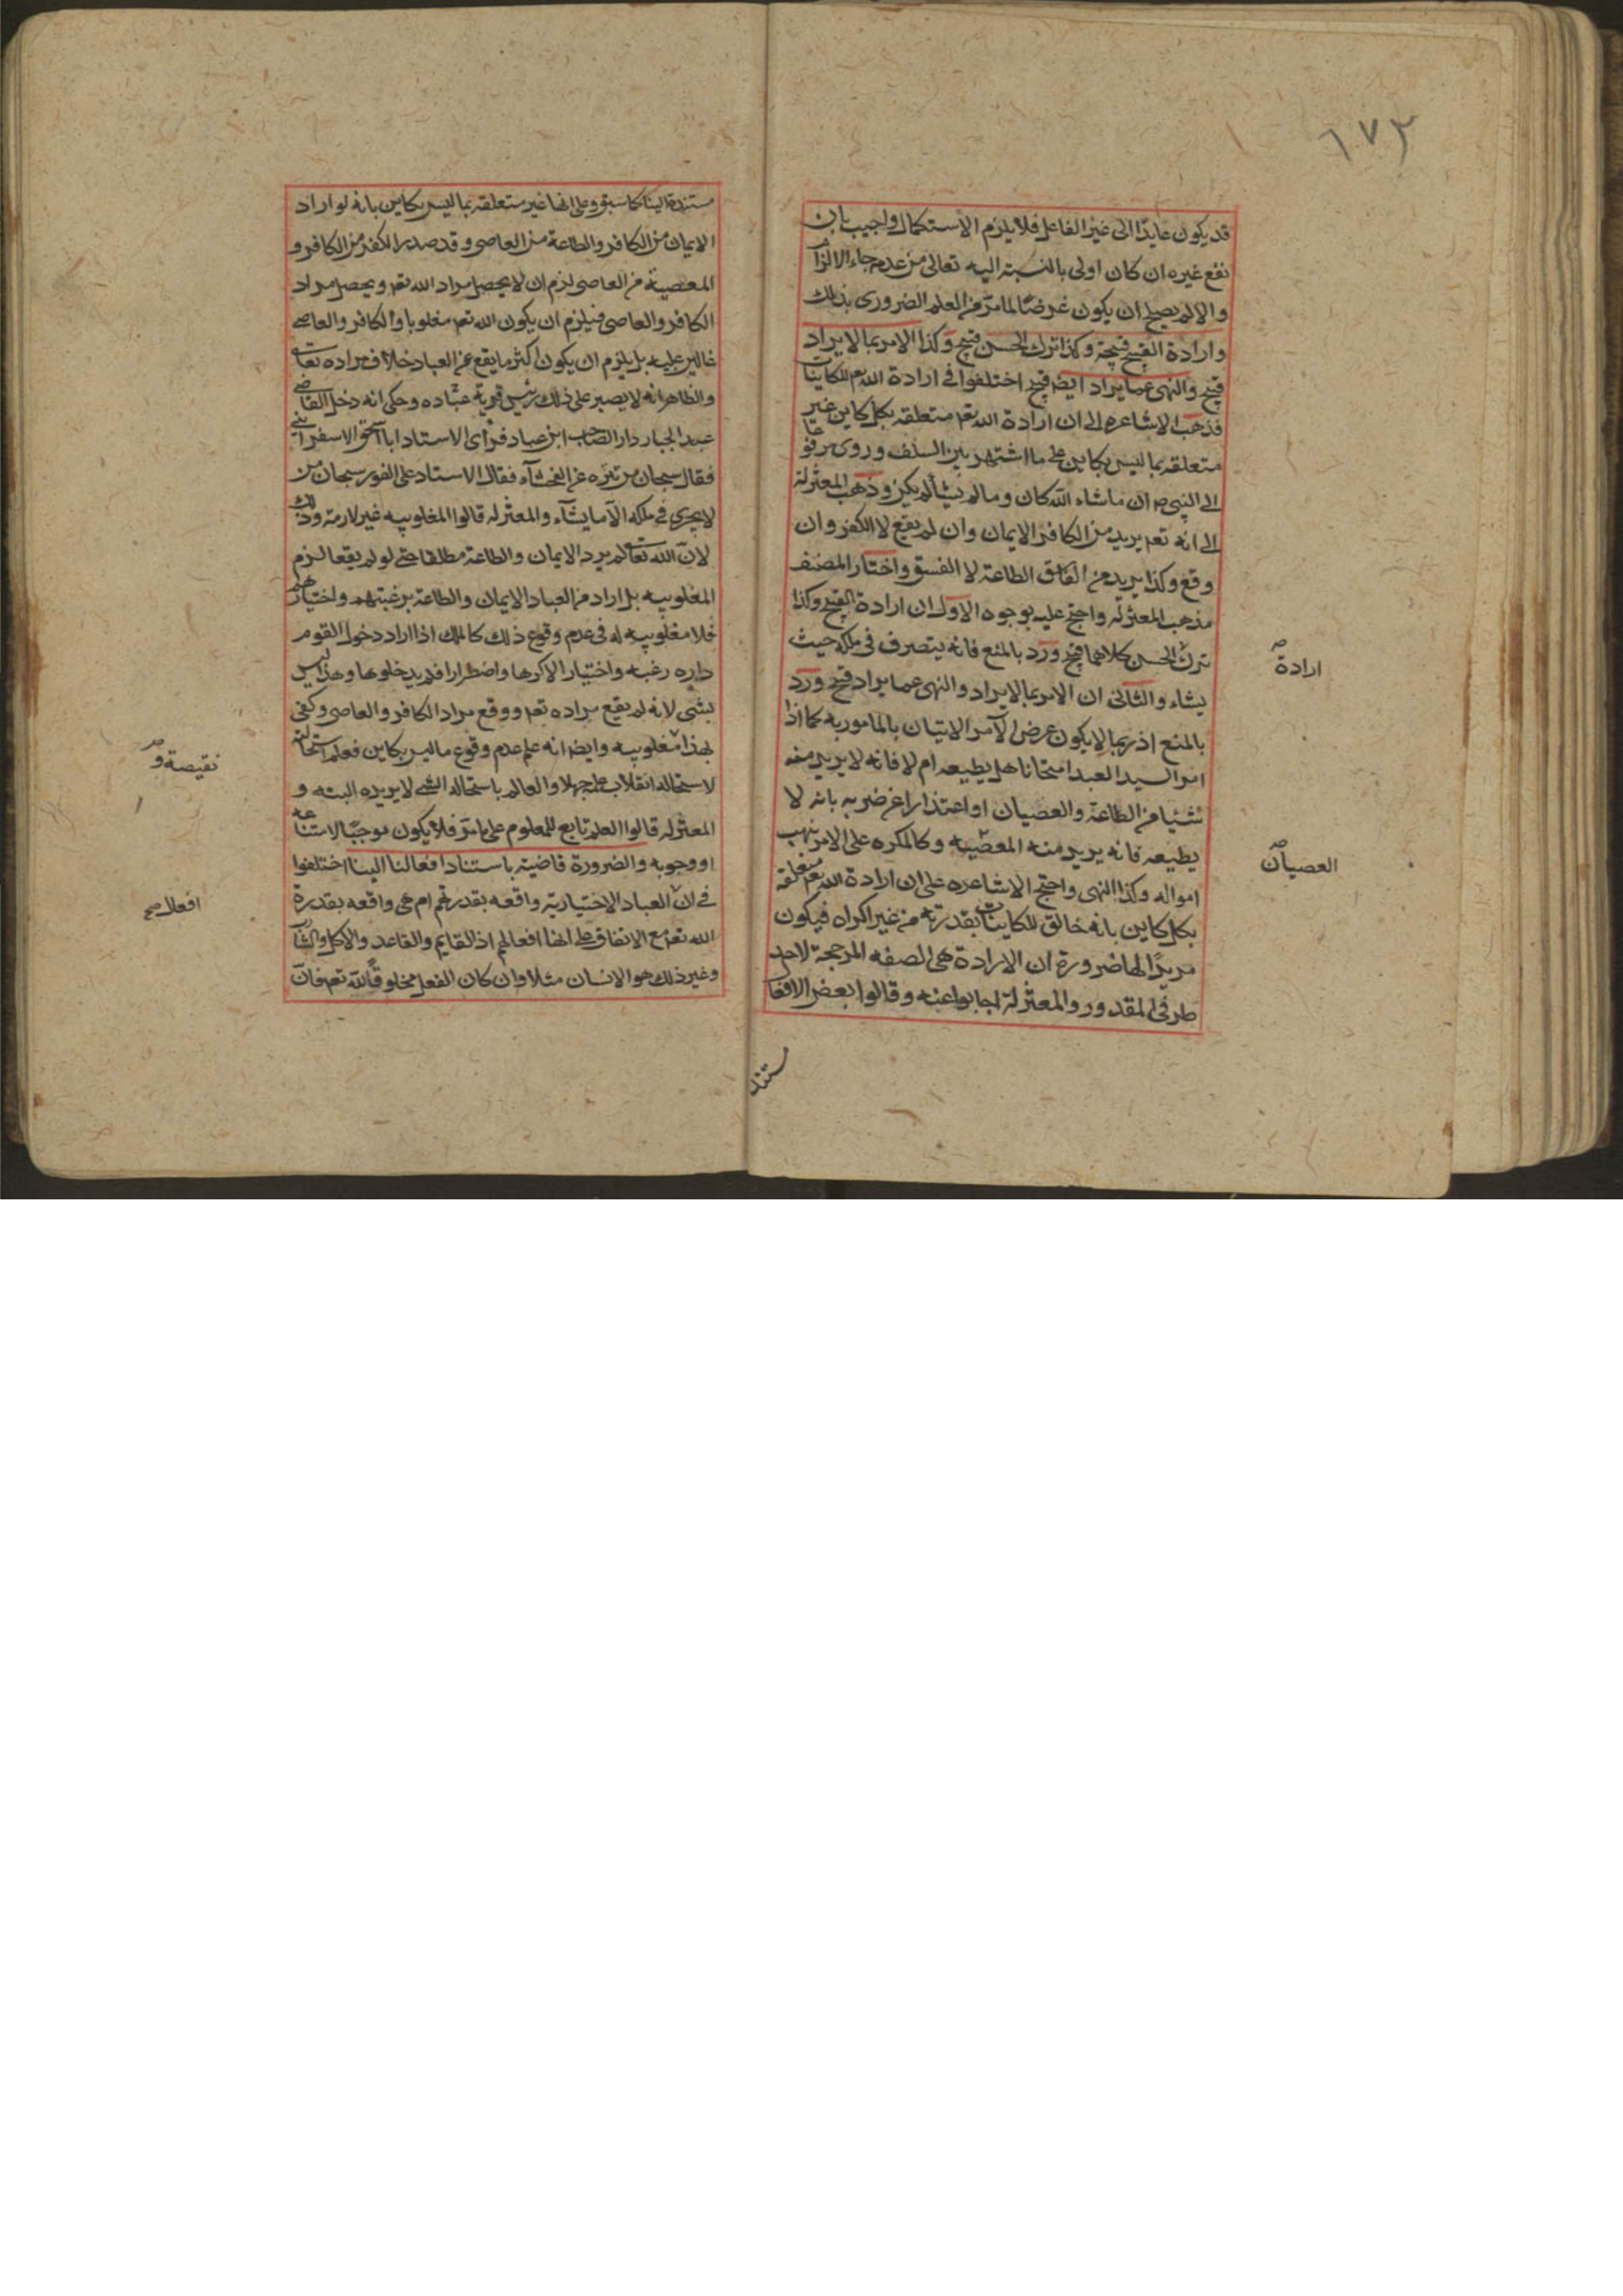 ٦٧٣
قد يكون عايدًا الى غير الفاعل فلا يلزم الاستكمال واجيب بان
نفع غيره ان كان اولى بالنسبة اليه تعالى من عدمه جاء الالزام
والا لم يصلح ان يكون غرضًا لما مرّ من العلم الضرورى بذلك
وارادة القبيح قبيحة وكذا ترك الحسن قبيح وكذا الامر بما لا يراد
قبيح والنهى عما يراد ايضا قبيح اختلفوا فى ارادة الله تعم للكاينات
فذهب الاشاعره الى ان ارادة الله تعم متعلقه بكل كاين غير
متعلقه بما ليس بكاين على ما اشتهر بين السلف وروى مرفوعا
الى النبى ص ان ماشاء الله كان وما لم يشأ لم يكن وذهب المعتزلة
الى انه تعم يريد من الكافر الايمان وان لم يقع لا الكفر وان
وقع وكذا يريد من الفاسق الطاعة لا الفسق واختار المصنف
مذهب المعتزله واحتج عليه بوجوه الاول ان ارادة القبيح وكذا
ترك الحسن كلاهما قبيح ورد بالمنع فانه يتصرف فى ملكه حيث
يشاء والثانى ان الامر بما لا يراد والنهى عما يراد قبيح ورد
بالمنع اذ ربما لا يكون غرض الآمر الاتيان بالماموربه كما اذا
امر السيد العبد امتحانا هل يطيعه ام لا فانه لا يريد منه
شيئا من الطاعة والعصيان او اعتذارا عن ضربه بانه لا
يطيعه فانه يريد منه المعصيه وكالمكره على الامر بنهب
امواله وكذا النهى واحتج الاشاعره على ان ارادة الله تعم متعلقة
بكل كاين بانه خالق للكاينات بقدرته من غير اكراه فيكون
مريدًا لها ضرورة ان الارادة هى الصفه المرجحة لاحد
طرفى المقدور والمعتزلة اجابوا عنه وقالوا بعض الافعا
ارادة
العصيان
مستند
مستندة الينا كما سبق وعلى انها غير متعلقه بما ليس بكاين بانه لو اراد
الايمان من الكافر والطاعة من العاصى وقد صدر الكفر من الكافر و
المعصية من العاصى لزم ان لا يحصل مراد الله تعم ويحصل مراد
الكافر والعاصى فيلزم ان يكون الله تعم مغلوبا والكافر والعاصى
غالبين عليه بل يلزم ان يكون اكثر ما يقع من العباد خلاف مراده تعالى
والظاهر انه لا يصبر على ذلك رئيس قرية عباده وحكى انه دخل القاضى
عبد الجبار دار الصاحب ابن عباد فراى الاستاد ابا اسحق الاسفراينى
فقال سبحان من تنزه عن الفحشآء فقال الاستاد على الفور سبحان من
لا يجرى فى ملكه الا ما يشآء والمعتزله قالوا المغلوبيه غير لازمة وذلك
لان الله تعالى لم يرد الايمان والطاعة مطلقا حتى لو لم يقعا لزم
المغلوبيه بل اراد من العباد الايمان والطاعة برغبتهم واختيارهم
فلا مغلوبيه له فى عدم وقوع ذلك كالملك اذا اراد دخول القوم
داره رغبه واختيارا لا كرها واضطرارا فلم يدخلوها وهذا ليس
بشى لانه لم يقع مراده تعم ووقع مراد الكافر والعاصى وكفى
بهذا مغلوبيه وايضا انه علم عدم وقوع ما ليس بكاين فعلم استحالته
لاستحاله انقلاب علمه جهلا والعالم باستحاله الشى لا يريده البته و
المعتزله قالوا العلم تابع للمعلوم على مامرّ فلا يكون موجبًا لامتناعه
او وجوبه والضرورة قاضية باستناد افعالنا الينا اختلفوا
فى ان العباد الاختيارية واقعه بقدرتهم ام هى واقعه بقدرة
الله تعم مع الاتفاق على انها افعالهم اذ القايم والقاعد والاكل والشارب
وغير ذلك هو الانسان مثلا وان كان الفعل مخلوقًا لله تعم فان
نقيصة و
افعال صح